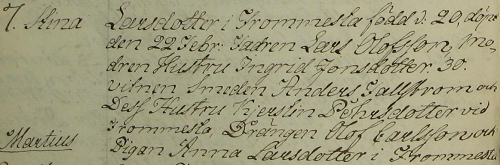 7. Anna Larsdotter i Frommesla född d. 20, döp-
den 22 Febr. Fadren Lars Olofsson, mo-
dren Hustru Ingrid Jonsdotter. 30.
vitnen Smeden Anders Falström och
Dess Hustru Kjerstin Pehrsdotter vid
Frommesla, Drängen Olof Carlsson och
Martius Pigan Anna Larsdotter i Frommesla